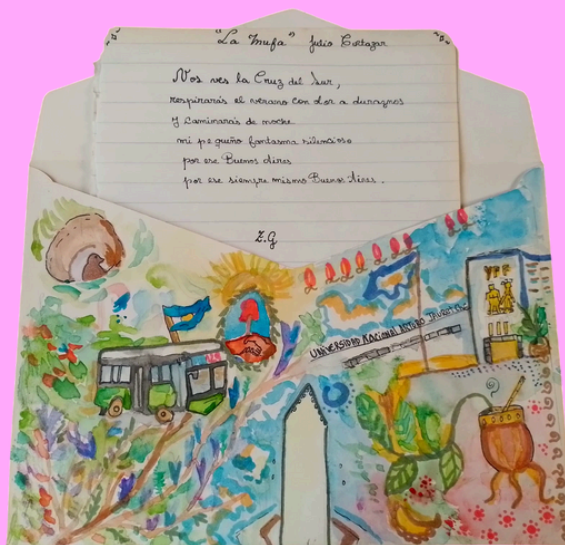 "La Mufa" Julio Cortazar
Vos ves la Cruz del Sur,
respirarás el verano con olor a duraznos
y caminarás de noche
mi pequeño fantasma silencioso
por ese Buenos Aires
por ese siempre mismo Buenos Aires.
Z.G
YPF
UNIVERSIDAD NACIONAL ARTURO